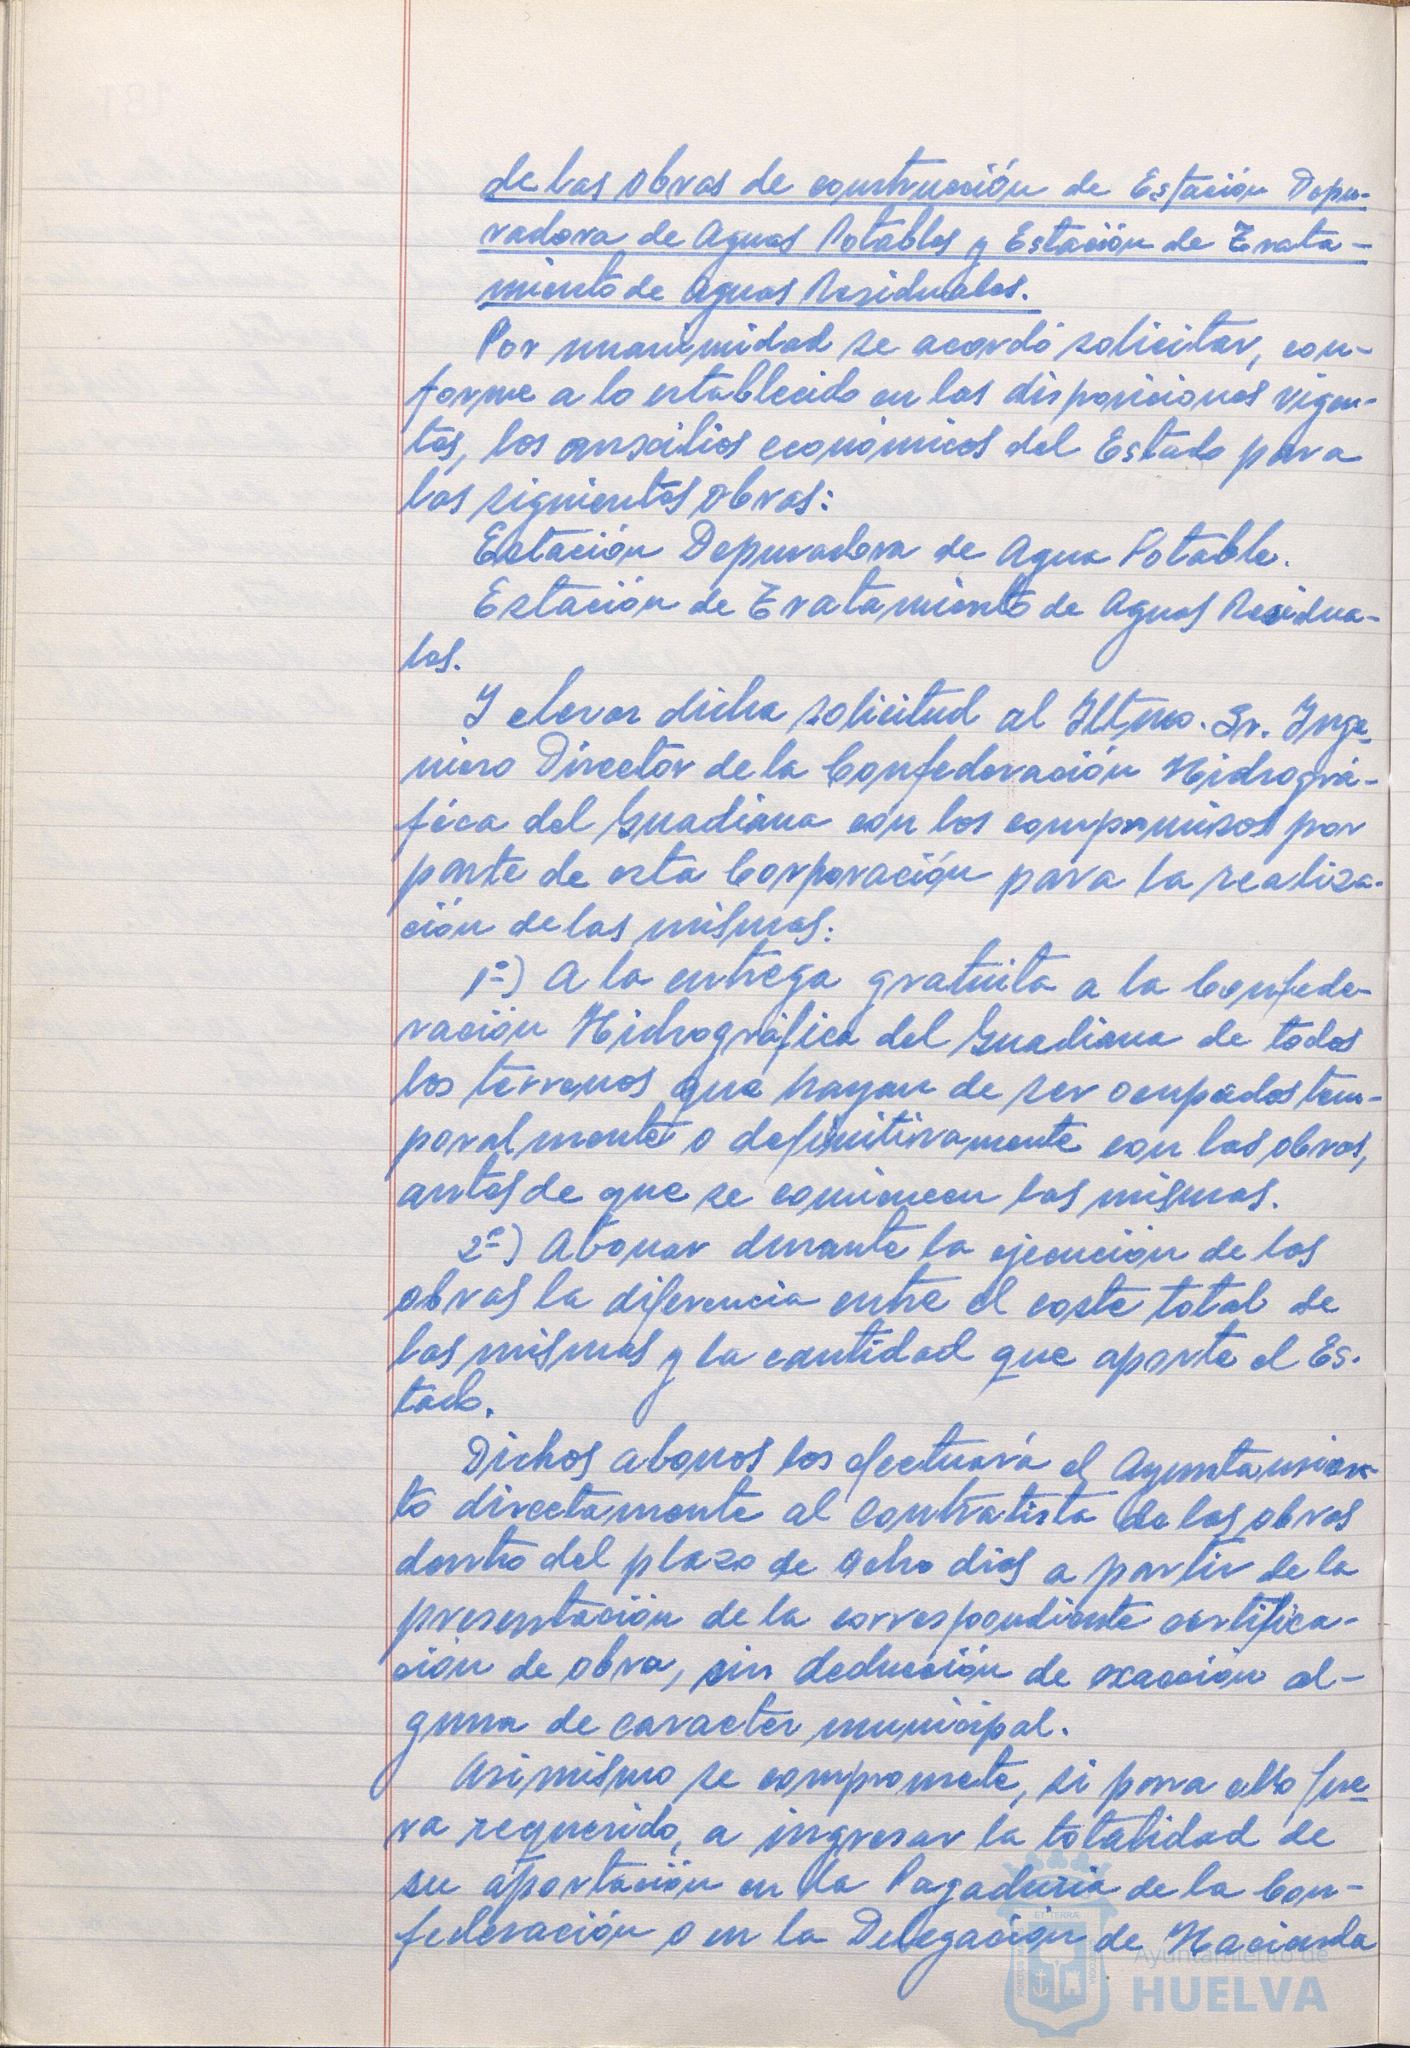 de las obras de construcción de Estación Depu-
radora de Aguas Potables y Estación de Trata-
miento de Aguas Residuales.
Por unanimidad se acordó solicitar, con-
forme a lo establecido en las disposiciones vigen-
tes, los auscilios económicos del Estado para
las siguientes obras:
Estación Depuradora de Agua Potable.
Estación de Tratamiento de Aguas Residua-
les.
Y elevar dicha solicitud al Iltmo. Sr. Inge-
niero Director de la Confederación Hidrográ-
fica del Guadiana con los compromisos por
parte de esta Corporación para la realiza-
ción de las mismas:
1º) A la entrega gratuita a la Confede-
ración Hidrográfica del Guadiana de todos
los terrenos que hayan de ser ocupados tem-
poralmente o definitivamente con las obras,
antes de que se comiencen las mismas.
2º) Abonar durante la ejecución de las
obras la diferencia entre el coste total de
las mismas y la cantidad que aporte el Es-
tado.
Dichos abonos los efectuará el Ayuntamien-
to directamente al contratista de las obras
dentro del plazo de ocho dias a partir de la
presentación de la correspondiente certifica-
ción de obra, sin deducción de exaccion al-
guna de caracter municipal.
Asimismo se compromete, si para ello fue-
ra requerido, a ingresar la totalidad de
su aportación en la Pagaduria de la Con-
federación o en la Delegación de Hacienda
Ayuntamiento de
HUELVA